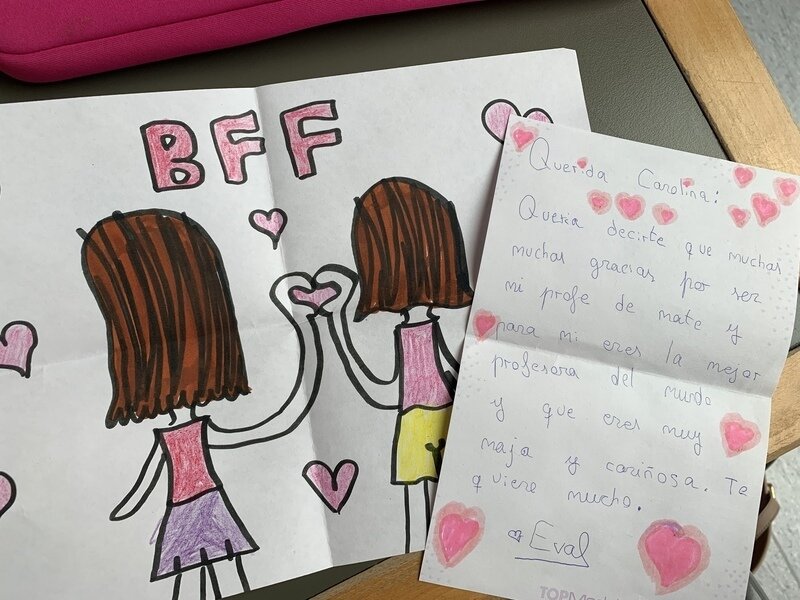 BFF
Querida Carolina:
Quería decirte que muchas
muchas gracias por ser
mi profe de mate y
para mi eres la mejor
profesora del mundo
y que eres muy
maja y cariñosa. Te
quiere mucho.
Eval
TOPMod